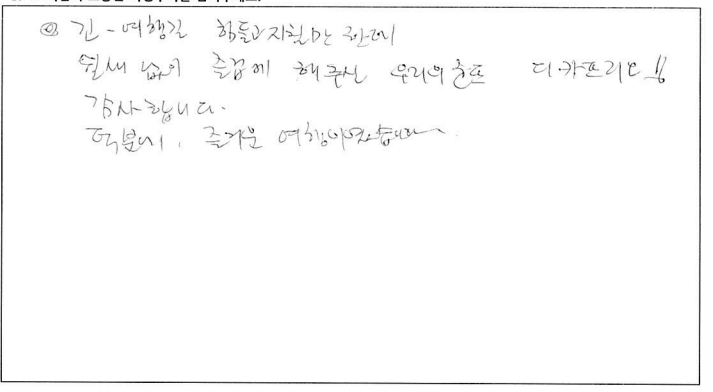 ② 긴-여행길 힘들고 지칠만 한데
쉴새 없이 즐겁게 해주신 우리의 디카프리오!!
감사합니다.
덕분에, 즐거운 여행이였습니다~